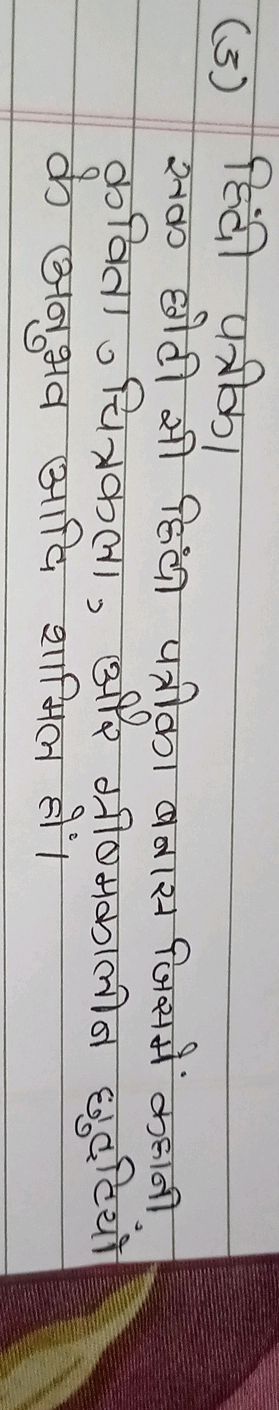 (3) हिंदी पत्रीका
एक छोटी सी हिंदी पत्रीका बनाए जिसमें कहानी
कविता, चित्रकला, और ग्रीष्मकालीन छुट्टियों
के अनुभव आदि शामिल हों।